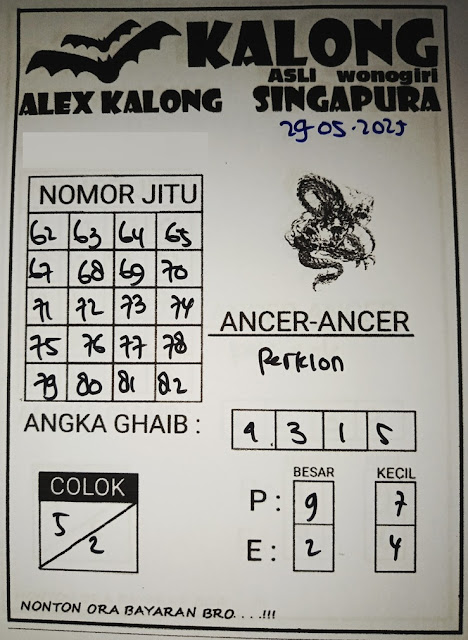 KALONG
ASLI wonogiri
ALEX KALONG SINGAPURA
29-05-2025
NOMOR JITU
62 63 64 65
67 68 69 70
71 72 73 74
75 76 77 78
79 80 81 82
ANCER-ANCER
Perklon
ANGKA GHAIB :
9 3 1 5
COLOK
5 2
BESAR KECIL
P : 9 7
E : 2 4
NONTON ORA BAYARAN BRO. . . .!!!